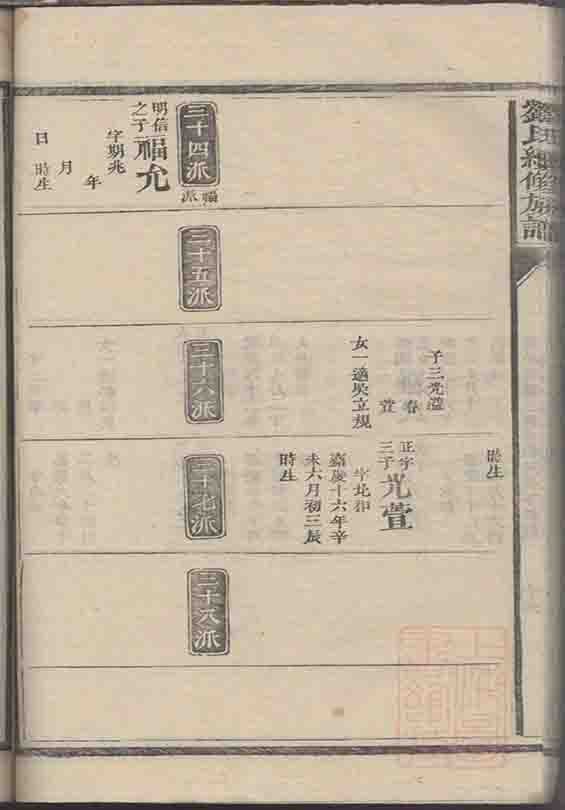 劉氏續修族譜
時生
子三光瀅
春
萱
女一適吳立規
正字
三子
光萱
字北
嘉慶十六年辛
未六月初三辰
時生
三十四派
福派
三十五派
三十六派
三十七派
三十八派
明信
之子
福允
字期兆
年
月
日 時生